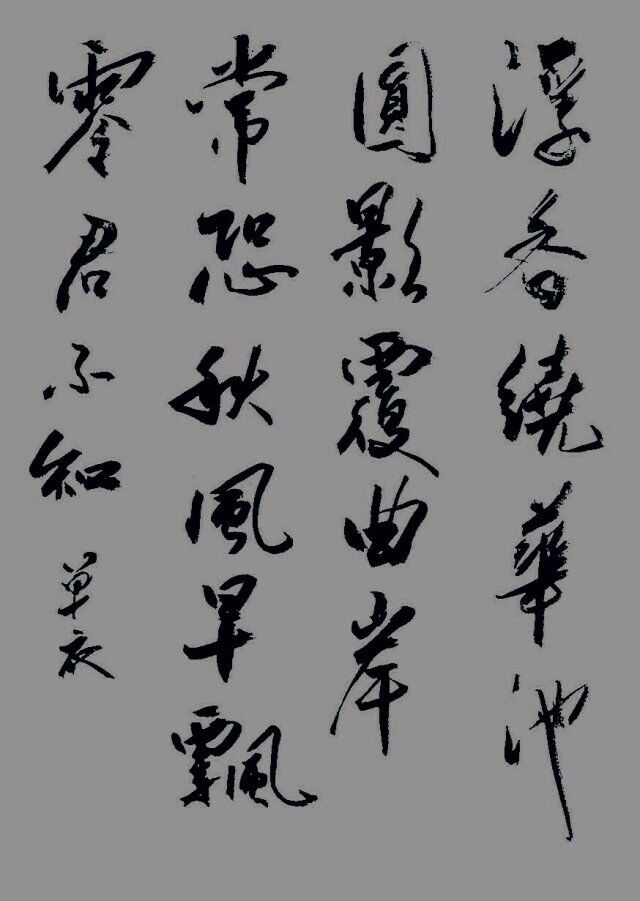 浮香繞華池
圓影覆曲岸
常恐秋風早飄
零君不知
单衣